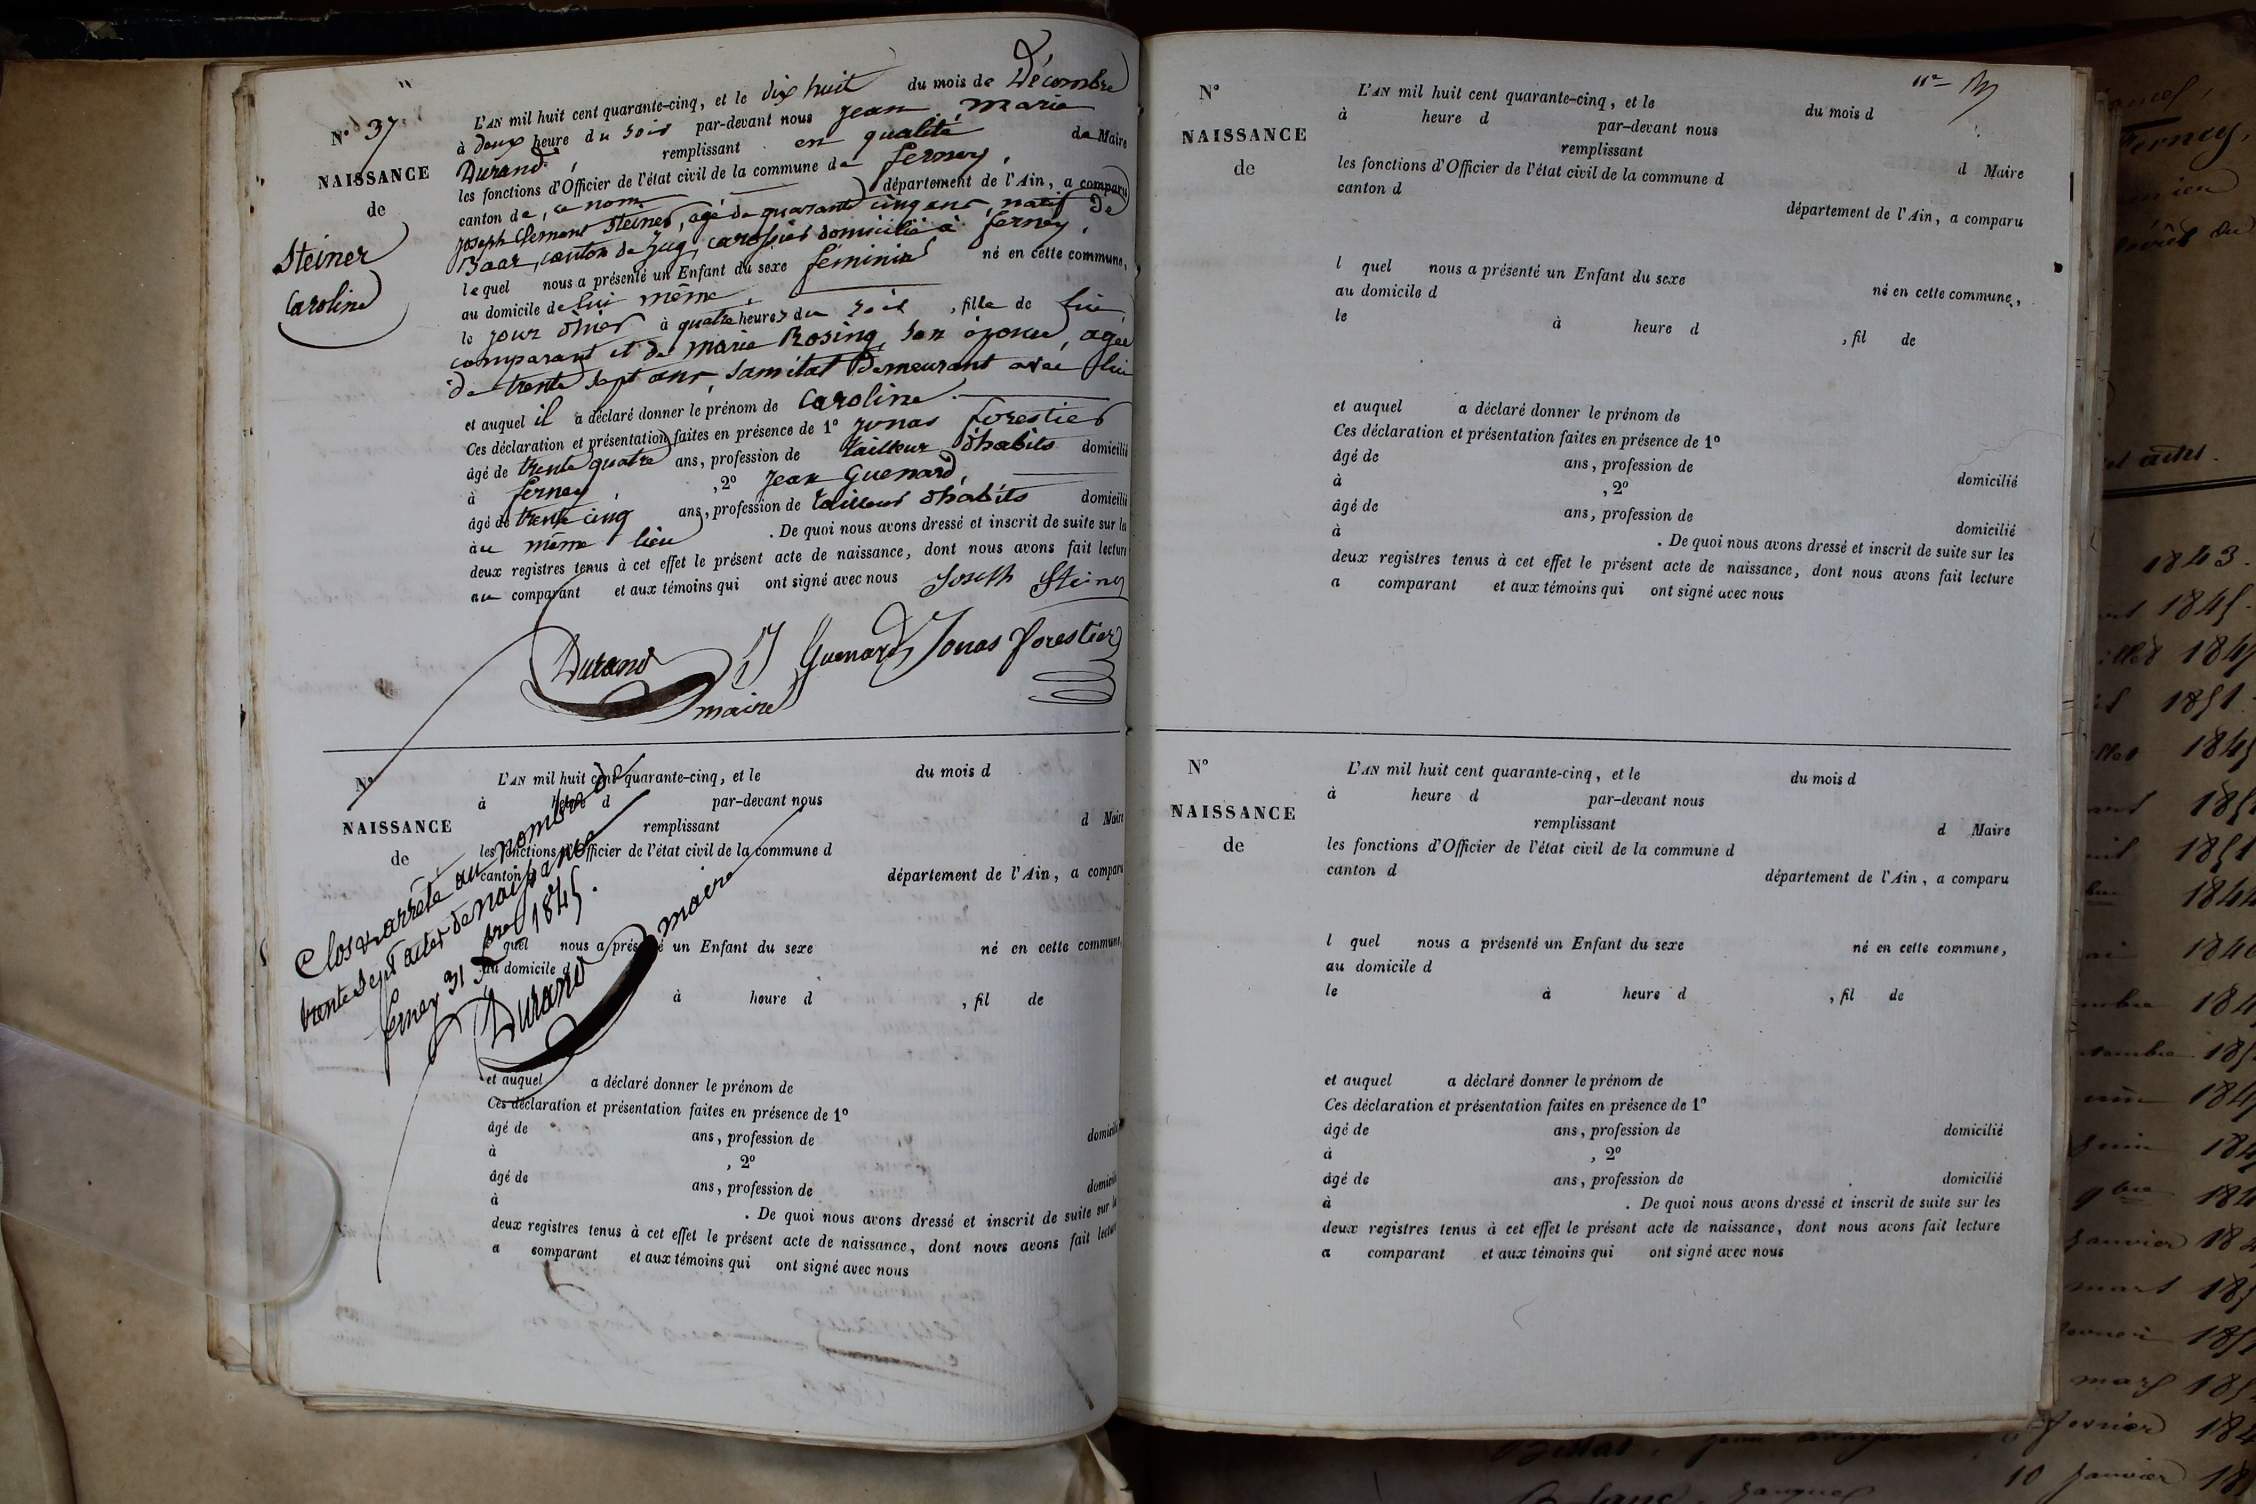 N° 37
NAISSANCE
de
Steiner
Caroline
L'AN mil huit cent quarante-cinq, et le dix huit du mois de Décembre
à deux heure du soir par-devant nous jean marie
Durand, remplissant en qualité de Maire
les fonctions d'Officier de l'état civil de la commune de ferney,
canton de, ce nom département de l'Ain, a comparu
joseph Clement Steiner, agé de quarante cinq ans, natif de
Baar, canton de Zug, carossier domicilié à ferney,
lequel nous a présenté un Enfant du sexe feminin né en cette commune,
au domicile de lui même,
le jour d'hier à quatre heures du soir, fille de lui
comparant et de marie Rosing, son épouse, agée
de trente sept ans, sans état demeurant avec lui
et auquel il a déclaré donner le prénom de Caroline.
Ces déclaration et présentation faites en présence de 1° jonas forestier
âgé de trente quatre ans, profession de tailleur d'habits domicilié
à ferney, , 2° jean Guenard,
âgé de trente cinq ans, profession de tailleur d'habits domicilié
au même lieu . De quoi nous avons dressé et inscrit de suite sur les
deux registres tenus à cet effet le présent acte de naissance, dont nous avons fait lecture
au comparant et aux témoins qui ont signé avec nous Joseph Steiner
Durand J Guenard Jonas forestier
maire
N°
NAISSANCE
de
L'AN mil huit cent quarante-cinq, et le du mois d
à heure d par-devant nous
remplissant d Maire
les fonctions d'Officier de l'état civil de la commune d
canton d département de l'Ain, a comparu
l quel nous a présenté un Enfant du sexe né en cette commune,
au domicile d
à heure d , fil de
et auquel a déclaré donner le prénom de
Ces déclaration et présentation faites en présence de 1°
âgé de ans, profession de domicilié
à , 2°
âgé de ans, profession de domicilié
à . De quoi nous avons dressé et inscrit de suite sur la
deux registres tenus à cet effet le présent acte de naissance, dont nous avons fait lecture
a comparant et aux témoins qui ont signé avec nous
Clos & arrêté au nombre de
trente sept actes de naissance
ferney 31 Xbre 1845.
Durand maire
N°
NAISSANCE
de
L'AN mil huit cent quarante-cinq, et le du mois d
à heure d par-devant nous
remplissant d Maire
les fonctions d'Officier de l'état civil de la commune d
canton d département de l'Ain, a comparu
l quel nous a présenté un Enfant du sexe né en cette commune,
au domicile d
le à heure d , fil de
et auquel a déclaré donner le prénom de
Ces déclaration et présentation faites en présence de 1°
âgé de ans, profession de domicilié
à , 2°
âgé de ans, profession de domicilié
à . De quoi nous avons dressé et inscrit de suite sur les
deux registres tenus à cet effet le présent acte de naissance, dont nous avons fait lecture
a comparant et aux témoins qui ont signé avec nous
N°
NAISSANCE
de
L'AN mil huit cent quarante-cinq, et le du mois d
à heure d par-devant nous
remplissant d Maire
les fonctions d'Officier de l'état civil de la commune d
canton d département de l'Ain, a comparu
l quel nous a présenté un Enfant du sexe né en cette commune,
au domicile d
le à heure d , fil de
et auquel a déclaré donner le prénom de
Ces déclaration et présentation faites en présence de 1°
âgé de ans, profession de domicilié
à , 2°
âgé de ans, profession de domicilié
à . De quoi nous avons dressé et inscrit de suite sur les
deux registres tenus à cet effet le présent acte de naissance, dont nous avons fait lecture
a comparant et aux témoins qui ont signé avec nous
Ferney,
1843.
1845.
1851
janvier
mars
mars
fevrier
10 janvier